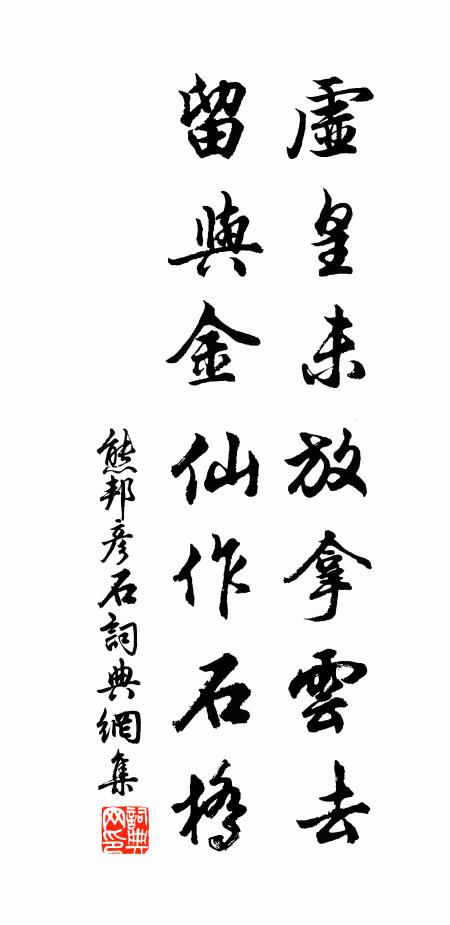 虛皇未放拿雲去
留與金仙作石橋
熊邦彥石詞典網集
詞典网印